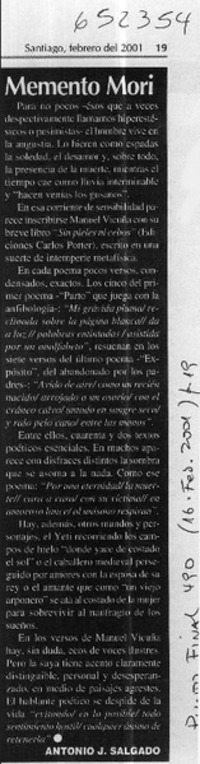 652354
Santiago, febrero del 2001 19
Memento Mori
Para no pocos -ésos que a veces
despectivamente llamamos hiperesté-
sicos o pesimistas- el hombre vive en
la angustia. Lo hieren como espadas
la soledad, el desamor y, sobre todo,
la presencia de la muerte, mientras el
tiempo cae como lluvia interminable
y "hacen venias los gusanos".
En esa corriente de sensibilidad pa-
rece inscribirse Manuel Vicuña con su
breve libro "Sin pieles ni cebos" (Edi-
ciones Carlos Porter), escrito en una
suerte de intemperie metafísica.
En cada poema pocos versos, con-
densados, exactos. Los cinco del pri-
mer poema -"Parto" que juega con la
anfibología-: "Mi grávida pluma/ re-
clinada sobre la página blanca/ da
a luz// palabras entintadas// asistida
por un analfabeto", resuenan en los
siete versos del último poema -"Ex-
pósito", del abandonado por los pa-
dres-: "Ávido de aire/ como un recién
nacido/ arrojado a un osario/ con el
cráneo calvo/ untado en sangre seca/
y ralo pelo cano/ entre las manos".
Entre ellos, cuarenta y dos textos
poéticos esenciales. En muchos apa-
rece con disfraces distintos la sombra
que se asoma a la nada. Como ese
poema: "Por una eternidad/ la muer-
te// cara a cara/ con su víctima// en
amoroso lance/ al unísono respiran".
Hay, además, otros mundos y per-
sonajes, el Yeti recorriendo los cam-
pos de hielo "donde yace de costado
el sol" o el caballero medieval perse-
guido por amores con la esposa de su
rey o el amante que como "un viejo
arponero" se ata al costado de la mujer
para sobrevivir al naufragio de los
sueños.
En los versos de Manuel Vicuña
hay, sin duda, ecos de voces ilustres.
Pero la suya tiene acento claramente
distinguible, personal y desesperan-
zado, en medio de paisajes agrestes.
El hablante poético se despide de la
vida "evitando/ en lo posible/ todo
sentimiento hostil/ cualquier
retenerla"
ANTONIO J. SALGADO
490 (16. Feb. 2001) p. 19